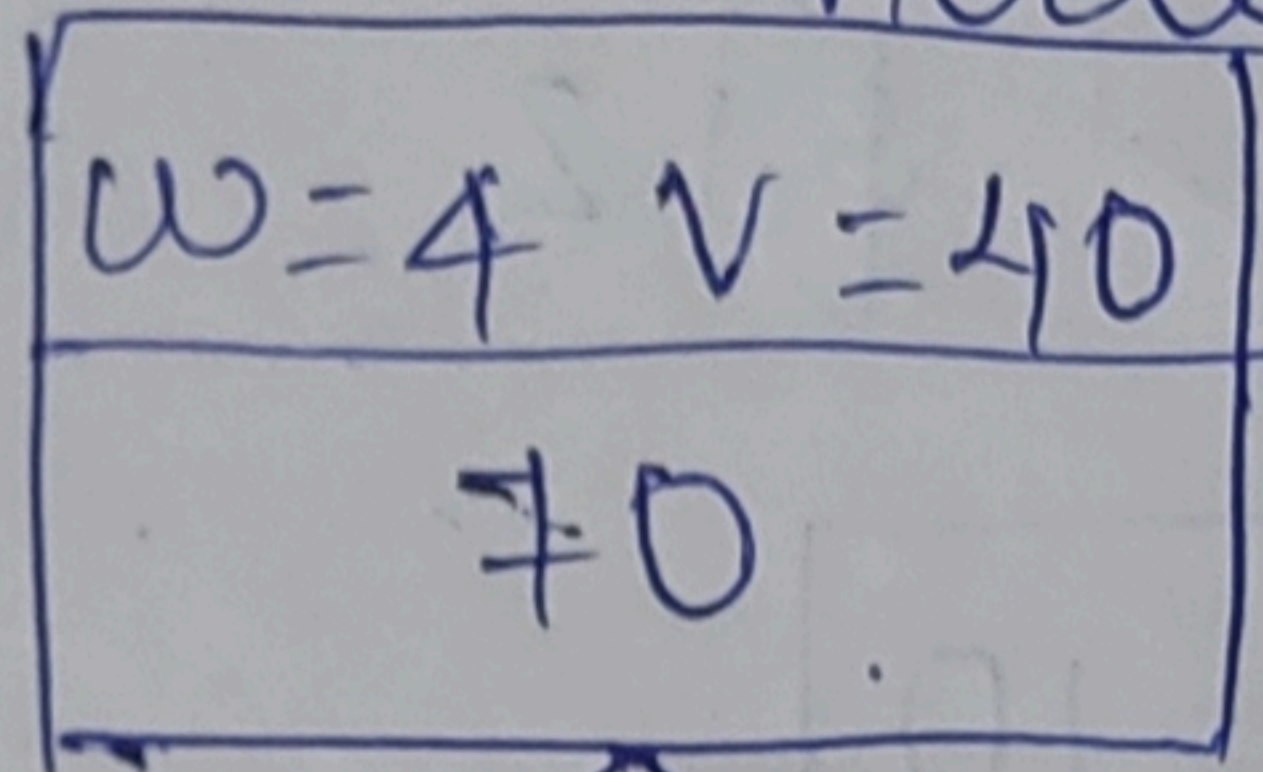 w=4 V=40
70